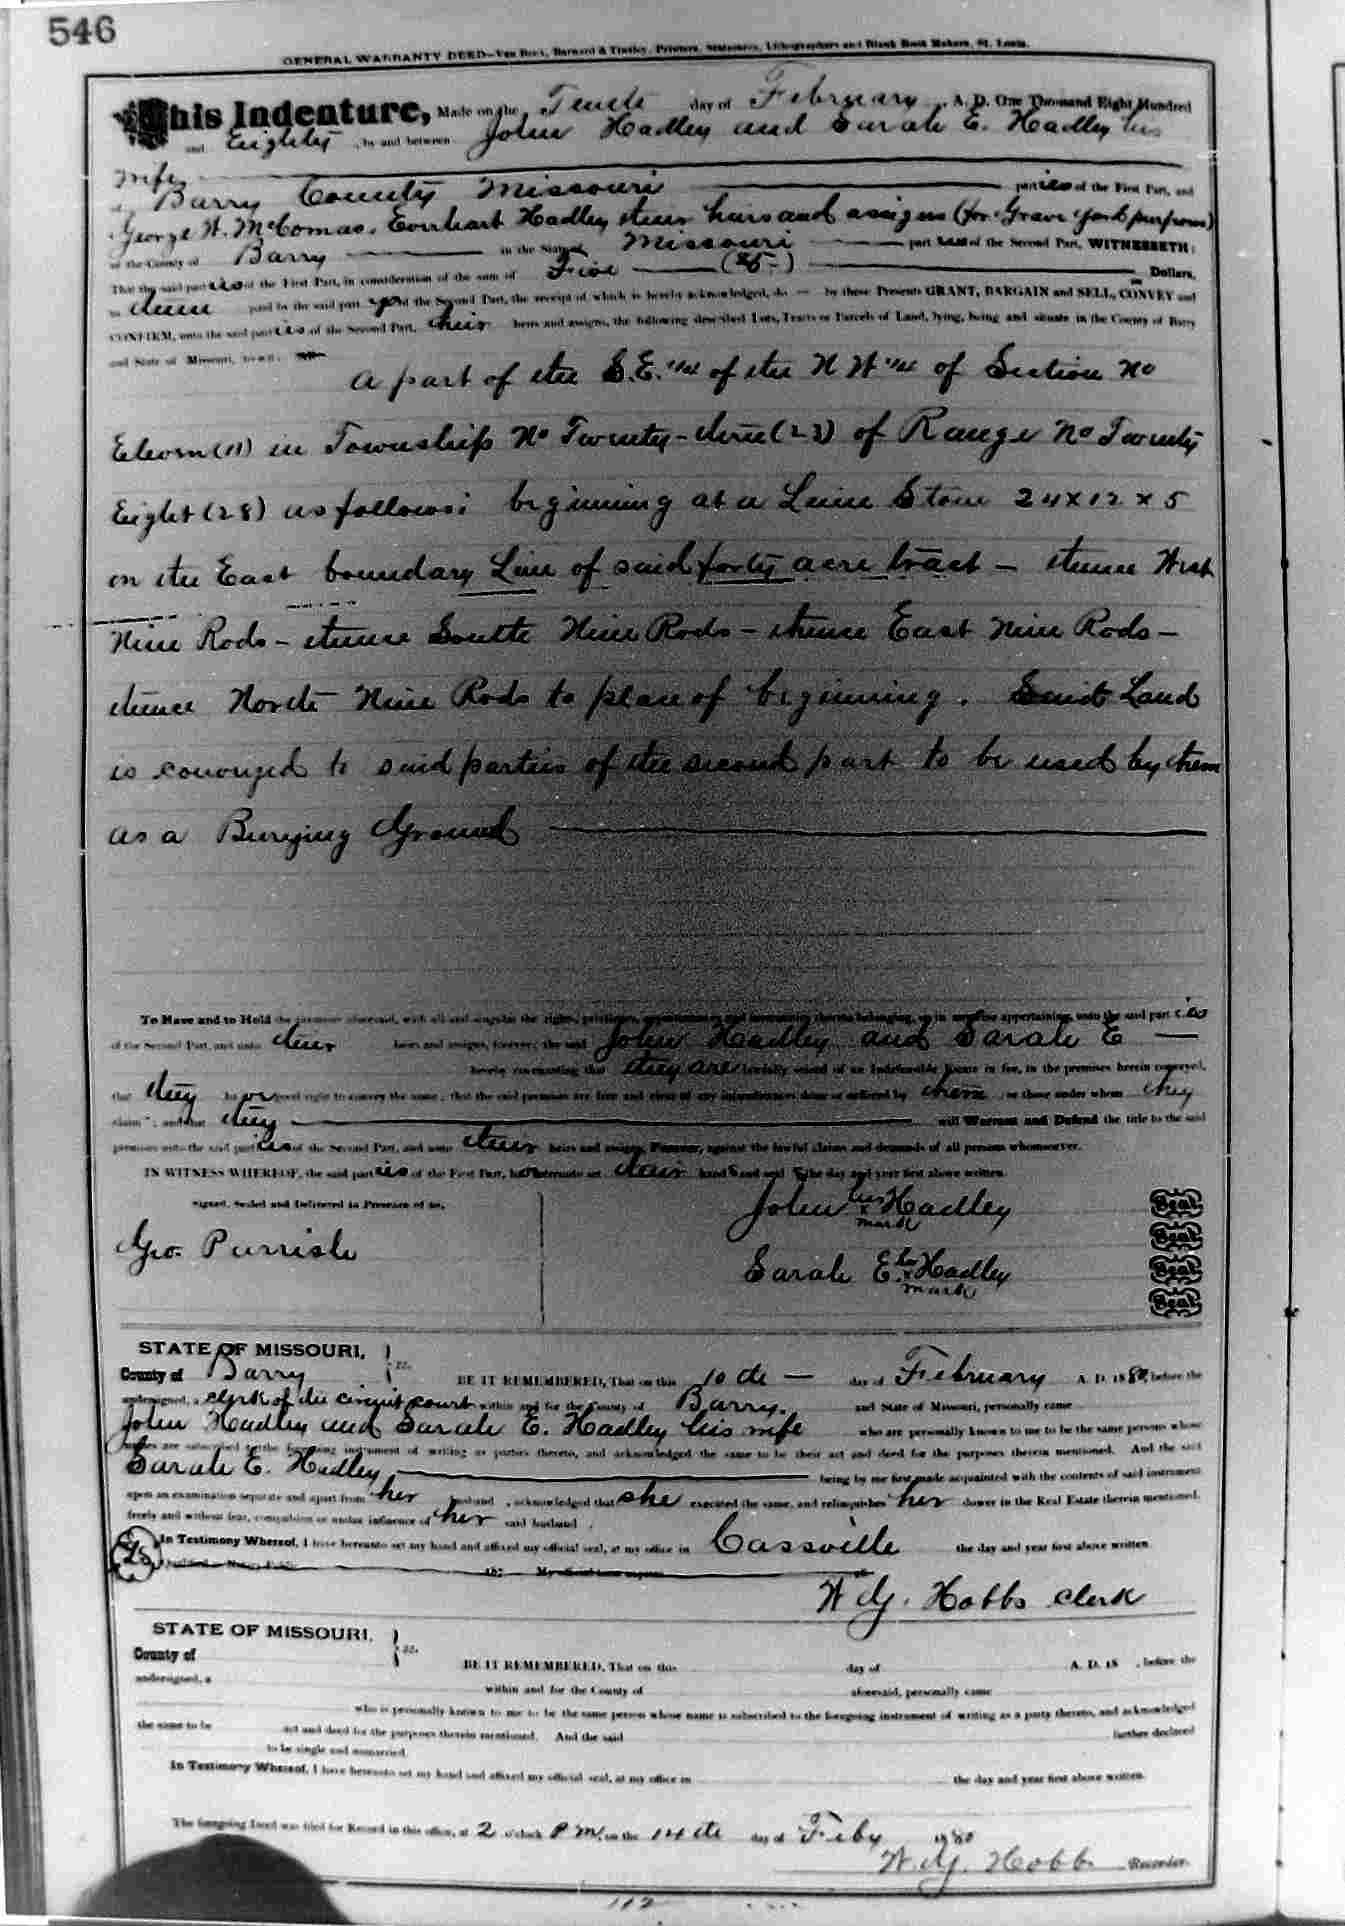 546
GENERAL WARRANTY DEED—Van Beek, Barnard & Tinsley, Printers, Stationers, Lithographers and Blank Book Makers, St. Louis.
This Indenture, Made on the Tenth day of February, A. D. One Thousand Eight Hundred
and Eighty, by and between John Hadley and Sarah E. Hadley his
wife
of Barry County Missouri parties of the First Part, and
George W. McComas, Everhart Hadley their heirs and assigns (for Grave yard purposes)
of the County of Barry in the State of Missouri part ies of the Second Part, WITNESSETH:
That the said parties of the First Part, in consideration of the sum of Five ($5-) Dollars,
to them paid by the said part y of the Second Part, the receipt of which is hereby acknowledged, do — by these Presents GRANT, BARGAIN and SELL, CONVEY and
CONFIRM, unto the said parties of the Second Part, their heirs and assigns, the following described Lots, Tracts or Parcels of Land, lying, being and situate in the County of Barry
and State of Missouri, to-wit:
A part of the S.E. 1/4 of the N W 1/4 of Section No
Eleven (11) in Township No Twenty-three (23) of Range No Twenty
Eight (28) as follows: beginning at a Lime Stone 24 x 12 x 5
on the East boundary Line of said forty acre tract — thence West
Nine Rods — thence South Nine Rods — thence East Nine Rods —
thence North Nine Rods to place of beginning. Said Land
is conveyed to said parties of the second part to be used by them
as a Burying Ground
To Have and to Hold the premises aforesaid, with all and singular the rights, privileges, appurtenances and immunities thereto belonging, or in any wise appertaining, unto the said part ies
of the Second Part, and unto their heirs and assigns, forever; the said John Hadley and Sarah E —
hereby covenanting that they are lawfully seized of an Indefeasible Estate in fee, in the premises herein conveyed,
that they have good right to convey the same; that the said premises are free and clear of any incumbrances done or suffered by them or those under whom they
claim; and that they will Warrant and Defend the title to the said
premises unto the said parties of the Second Part, and unto their heirs and assigns Forever, against the lawful claims and demands of all persons whomsoever.
IN WITNESS WHEREOF, the said parties of the First Part, have hereunto set their hands and seals the day and year first above written.
Signed, Sealed and Delivered in Presence of us,
John his x mark Hadley Seal
Seal
Geo. Purrish
Sarah E. her x mark Hadley Seal
Seal
STATE OF MISSOURI,
County of Barry } ss. BE IT REMEMBERED, That on this 10th — day of February A. D. 1880, before the
undersigned, a clerk of the circuit court within and for the County of Barry, and State of Missouri, personally came
John Hadley and Sarah E. Hadley his wife who are personally known to me to be the same persons whose
names are subscribed to the foregoing instrument of writing as parties thereto, and acknowledged the same to be their act and deed for the purposes therein mentioned. And the said
Sarah E. Hadley being by me first made acquainted with the contents of said instrument
upon an examination separate and apart from her husband, acknowledged that she executed the same, and relinquishes her dower in the Real Estate therein mentioned,
freely and without fear, compulsion or undue influence of her said husband.
LS In Testimony Whereof, I have hereunto set my hand and affixed my official seal, at my office in Cassville the day and year first above written.
W. G. Hobbs Clerk
STATE OF MISSOURI,
County of } ss. BE IT REMEMBERED, That on this day of A. D. 18 , before the
undersigned, a within and for the County of aforesaid, personally came
who is personally known to me to be the same person whose name is subscribed to the foregoing instrument of writing as a party thereto, and acknowledged
the same to be act and deed for the purposes therein mentioned. And the said further declared
to be single and unmarried.
In Testimony Whereof, I have hereunto set my hand and affixed my official seal, at my office in the day and year first above written.
The foregoing Deed was filed for Record in this office, at 2 o'clock P M, on the 14th day of Feby 1880
W. G. Hobbs Recorder.